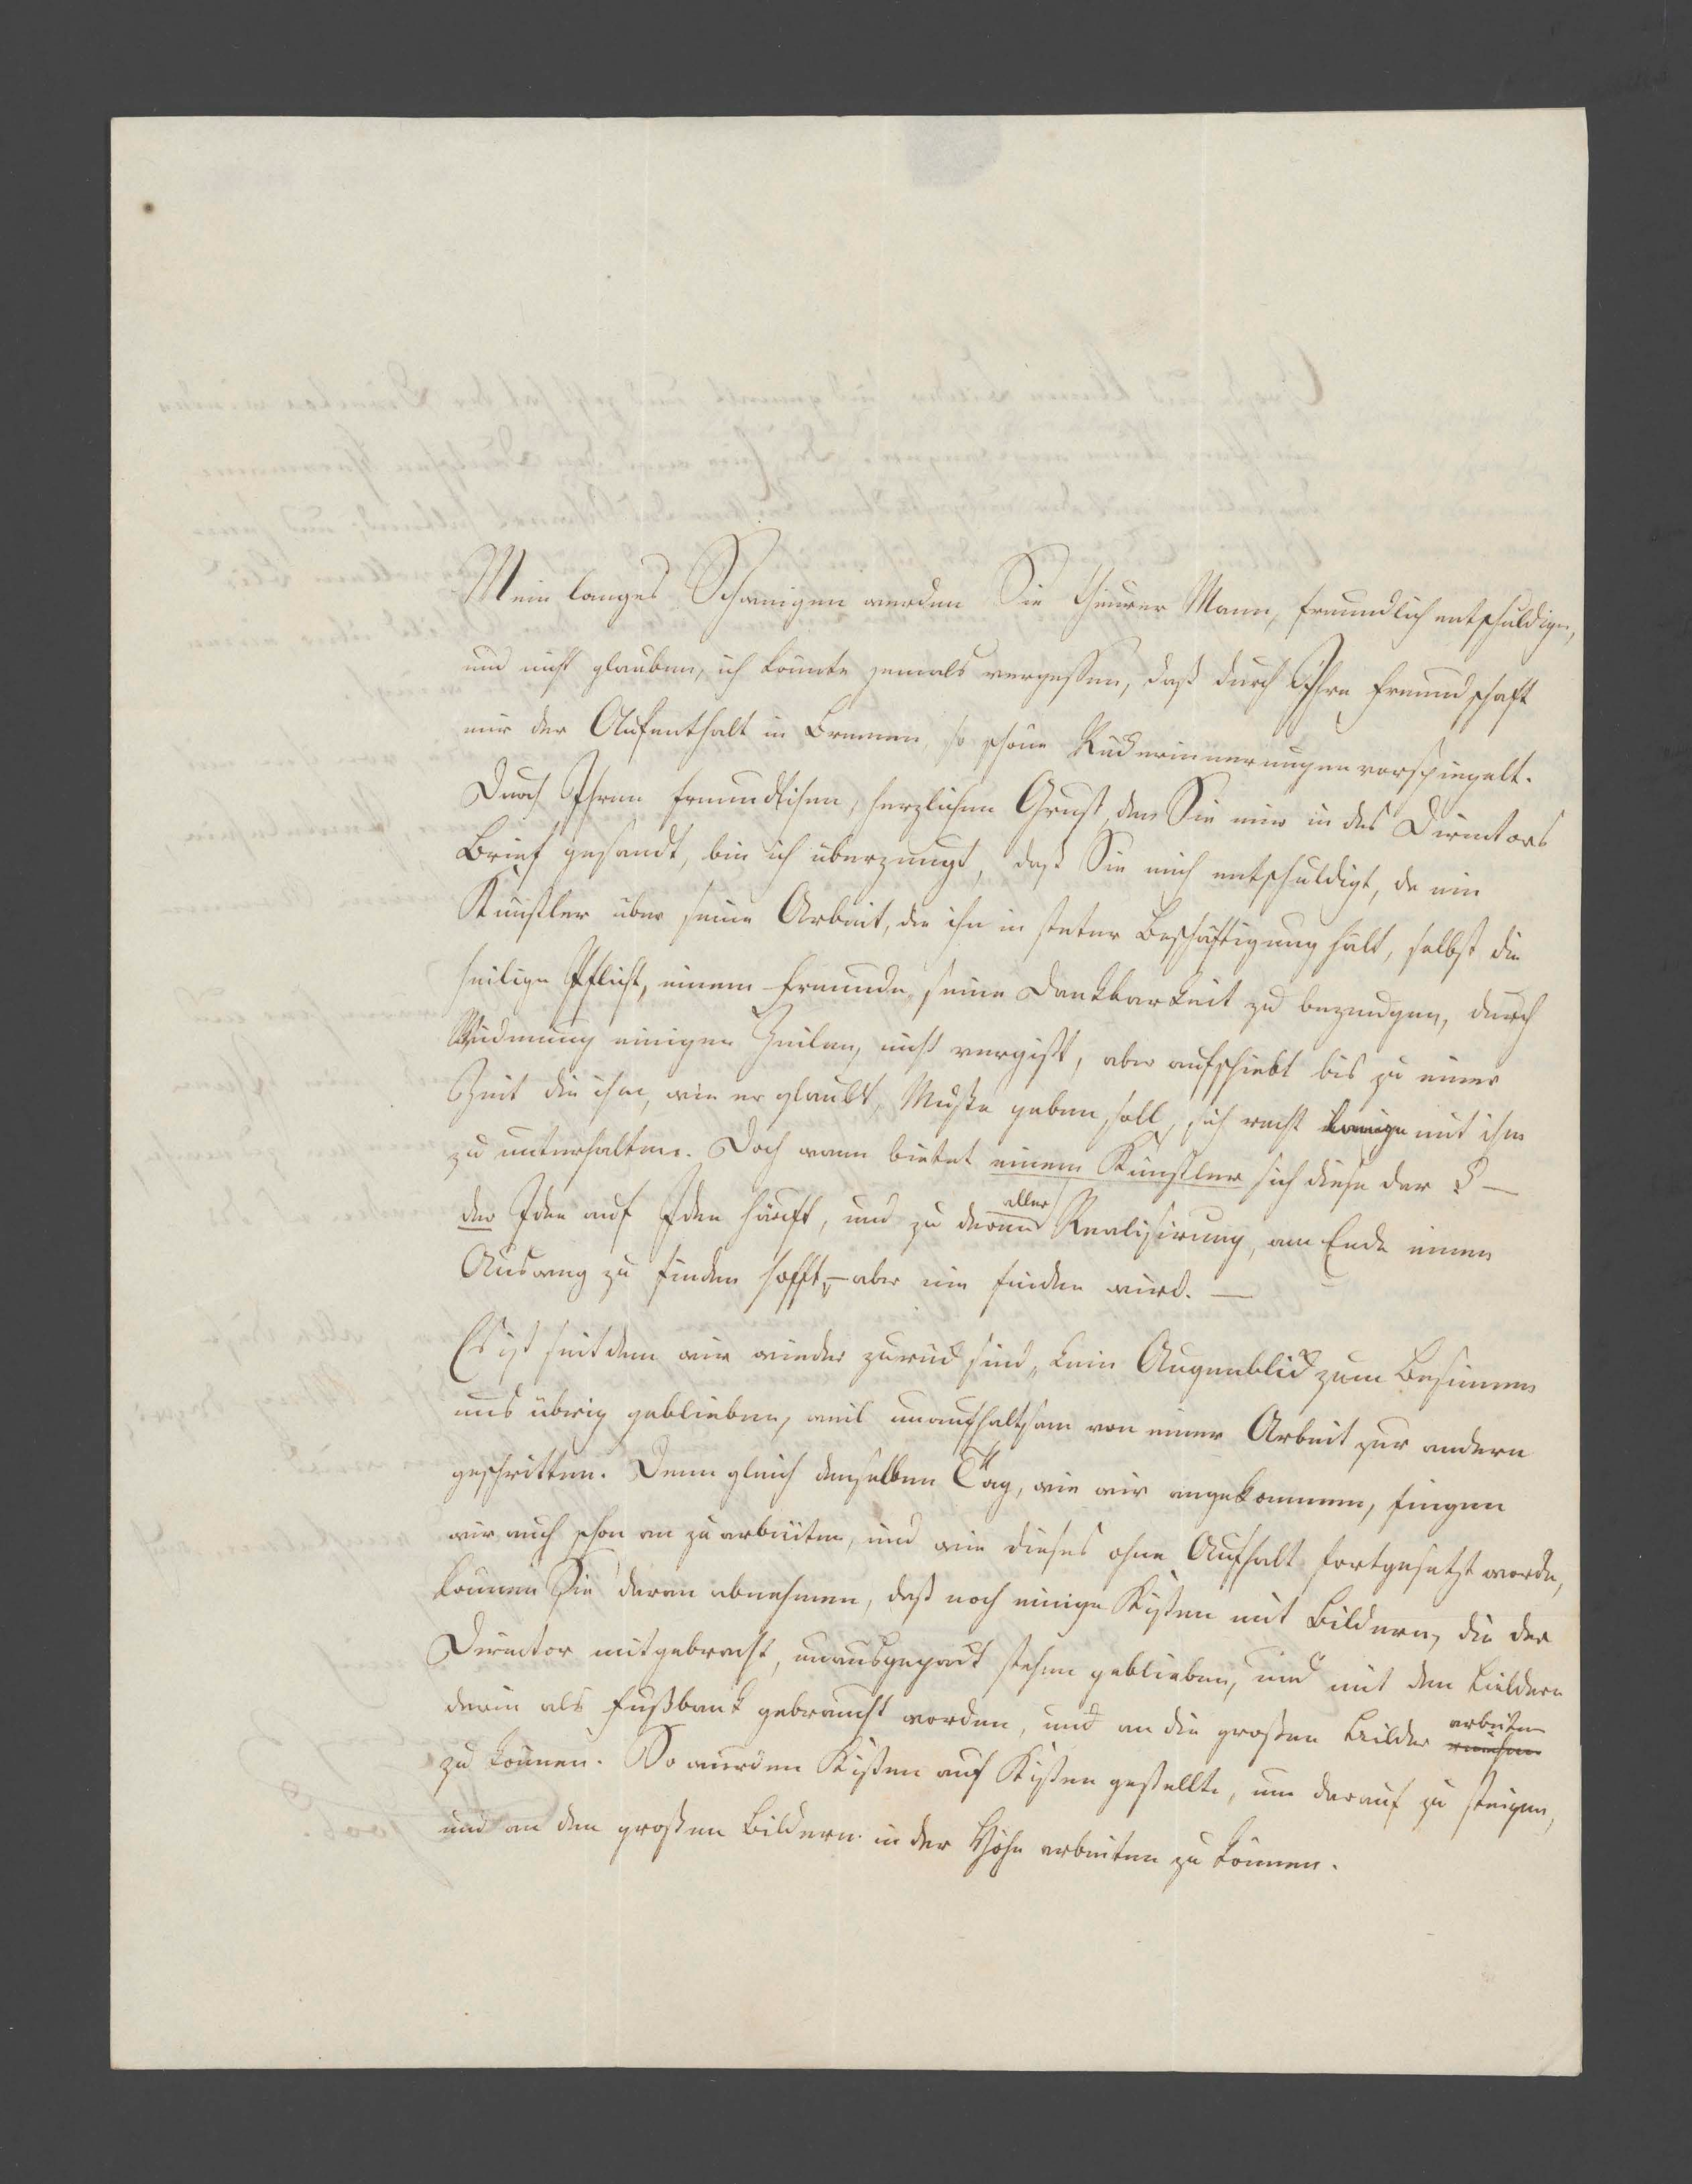 Mein langes Schweigen werden Sie theurer Mann, freundlich entschuldigen,
und nicht glauben, ich könnte jemals vergessen, daß durch Ihre Freundschaft
mir der Aufenthalt in Bremen, so schöne Rückerinnerungen vorspiegelt.
Durch Ihren freundlichen, herzlichen Gruß, den Sie mir in des Directors
Brief gesandt, bin ich überzeugt, daß Sie mich entschuldigt, da ein
Künstler über seine Arbeit, die ihn in steter Beschäftigung hält, selbst die
heilige Pflicht, einem Freunde, seine Dankbarkeit zu bezeugen, durch
Widmung einiger Zeilen, nicht vergißt, aber aufschiebt bis zu einer
Zeit die ihm, wie er glaubt, Muße geben soll, sich recht lange mit ihm
zu unterhalten. Doch wann bietet einem Künstler sich diese dar? —
der Idee auf Idee häuft, und zu deren aller Realisirung, am Ende einen
Ausweg zu finden hofft, – aber nie finden wird. —
Es ist seitdem wir wieder zurück sind, kein Augenblick zum Besinnen
uns übrig geblieben, weil unaufhaltsam von einer Arbeit zur andern
geschritten. Denn gleich denselben Tag, wie wir angekommen, fingen
wir auch schon an zu arbeiten, und wie dieses ohne Aufhalt fortgesetzt worden,
können Sie daran abnehmen, daß noch einige Kisten mit Bildern, die der
Director mitgebracht, unausgepackt stehen geblieben, und mit den Bildern
darin als Fußbank gebraucht worden, um an die großen Bilder arbeiten
zu können. So wurden Kisten auf Kisten gestellt, um darauf zu steigen,
und an den großen Bildern in der Höhe arbeiten zu können.